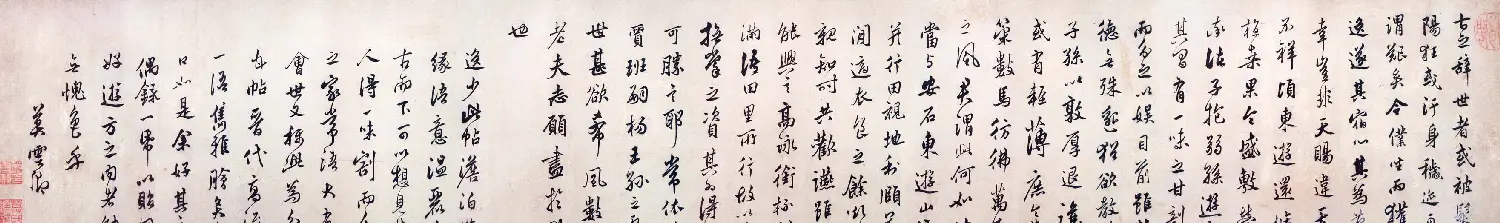 古之辞世者或被髮
陽狂或汙身穢迹
謂艱矣今僕坐而獲
逸遂其宿心其為
幸豈非天賜違天
不祥頃東遊還
植桑果今盛敷榮
率諸子抱弱孫遊
其間有一味之甘割
而分之以娛目前雖
德無殊邈猶欲教
子孫以敦厚退讓
或有輕薄庶令
策數馬彷彿萬
之風君謂此何如
當与安石東遊山
并行田視地利頤
閒適衣食之餘欲
親知時共歡讌雖
能興言高詠銜杯
滿語田里所行故以
撫掌之資其為得
可勝言耶常依
賈班嗣楊王孫之
世甚欲希風數
老夫志願盡於
也
逸少此帖澹泊
緣語意溫麗
古而下可以想見
人得一味割而
之家常語大
會世又極興為
帖晉代高流
一語雋雅
口如是余好其
偶錄一帋以貽
好遊方之内者
無愧色乎
莫雲卿